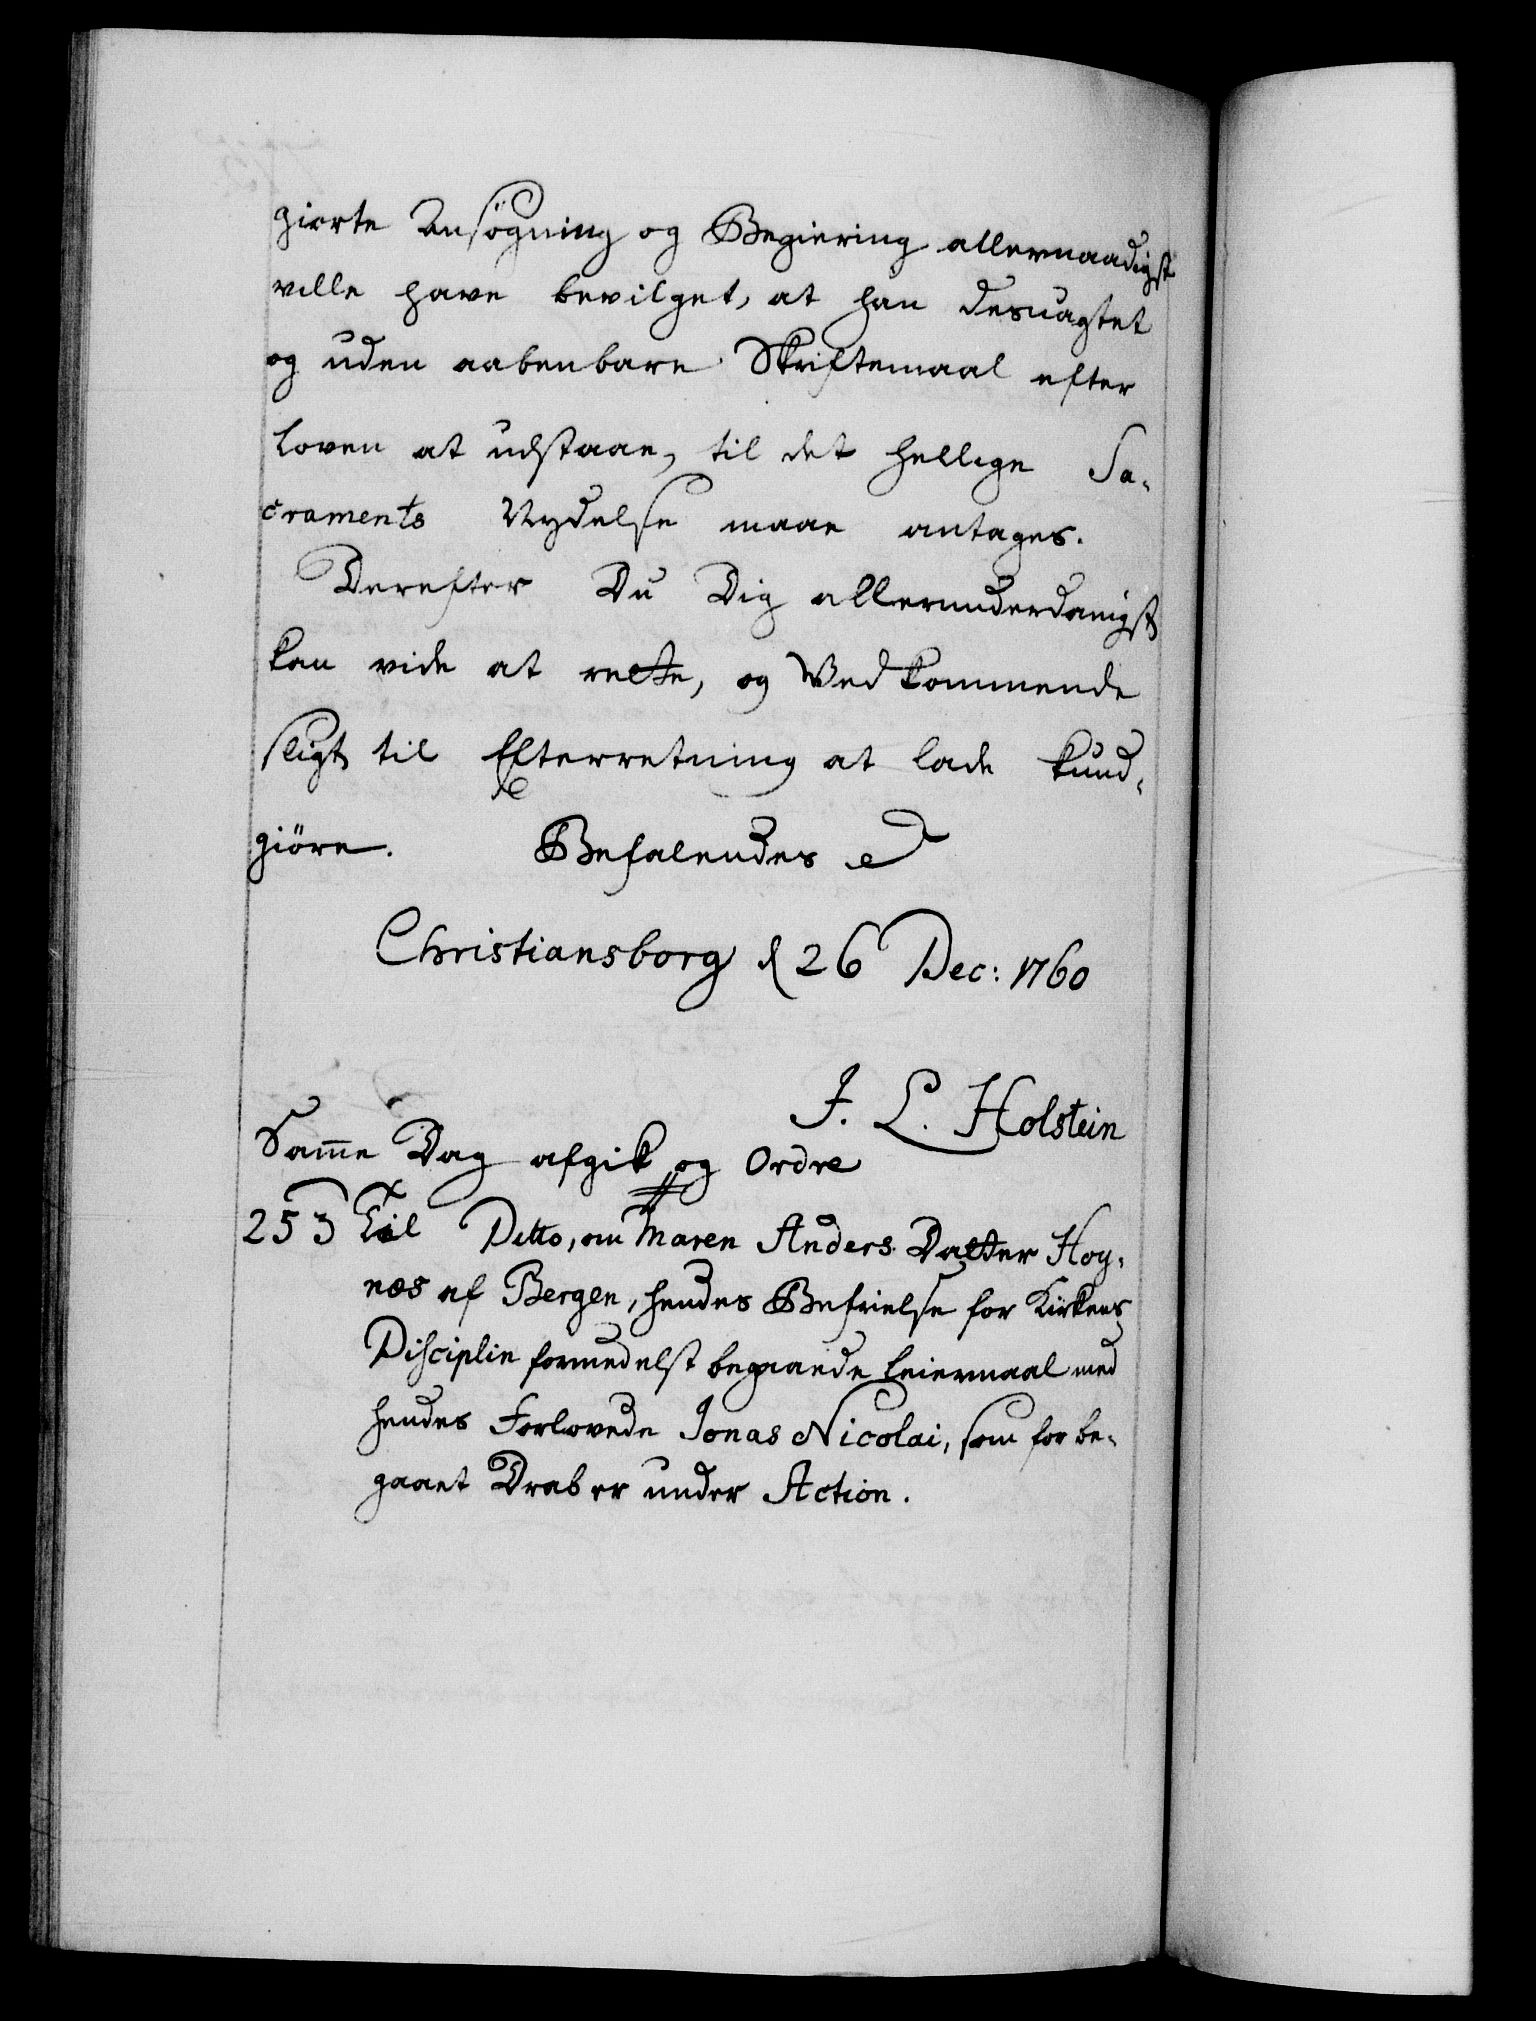 giorte Ansögning og Begiering allernaadigst
ville have bevilget, at han desuagtet
og uden aabenbare Skriftemaal efter
Loven at udstaae, til det hellige Sa-
craments Nydelse maae antages.
Derefter Du Dig allerunderdanigst
kan vide at rette, og Vedkommende
sligt til Efterretning at lade kund-
giöre. Befalendes
Christiansborg d 26 Dec: 1760
J. L. Holstein
Samme Dag afgik og Ordre
253 Til Ditto, om Maren Anders Datter Hoy-
næs af Bergen, hendes Befrielse for Kirkens
Disciplin formedelst begaaede Leiermaal med
hendes Forlovede Jonas Nicolai, som for be-
gaaet Drab er under Action.